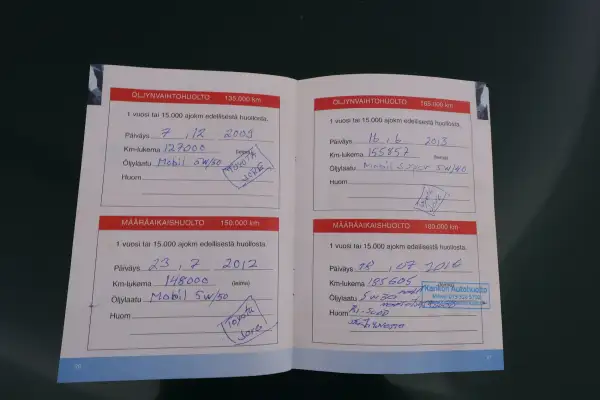 ÖLJYNVAIHTOHUOLTO 135.000 km
1 vuosi tai 15.000 ajokm edellisestä huollosta.
Päiväys 7 . 12 2009
Km-lukema 127000 (leima)
Öljylaatu Mobil 5w/50
TOYOTA
JORE
Huom
MÄÄRÄAIKAISHUOLTO 150.000 km
1 vuosi tai 15.000 ajokm edellisestä huollosta.
Päiväys 23 . 7 2012
Km-lukema 148000 (leima)
Öljylaatu Mobil 5w/50
Huom
Toyota
Jore
ÖLJYNVAIHTOHUOLTO 165.000 km
1 vuosi tai 15.000 ajokm edellisestä huollosta.
Päiväys 16 . 6 2013
Km-lukema 155857 (leima)
Öljylaatu Mobil Super 5w/40
Huom
MÄÄRÄAIKAISHUOLTO 180.000 km
1 vuosi tai 15.000 ajokm edellisestä huollosta.
Päiväys 07 2016
Km-lukema 185605
Autohuolto
Öljylaatu 5w30
Huom